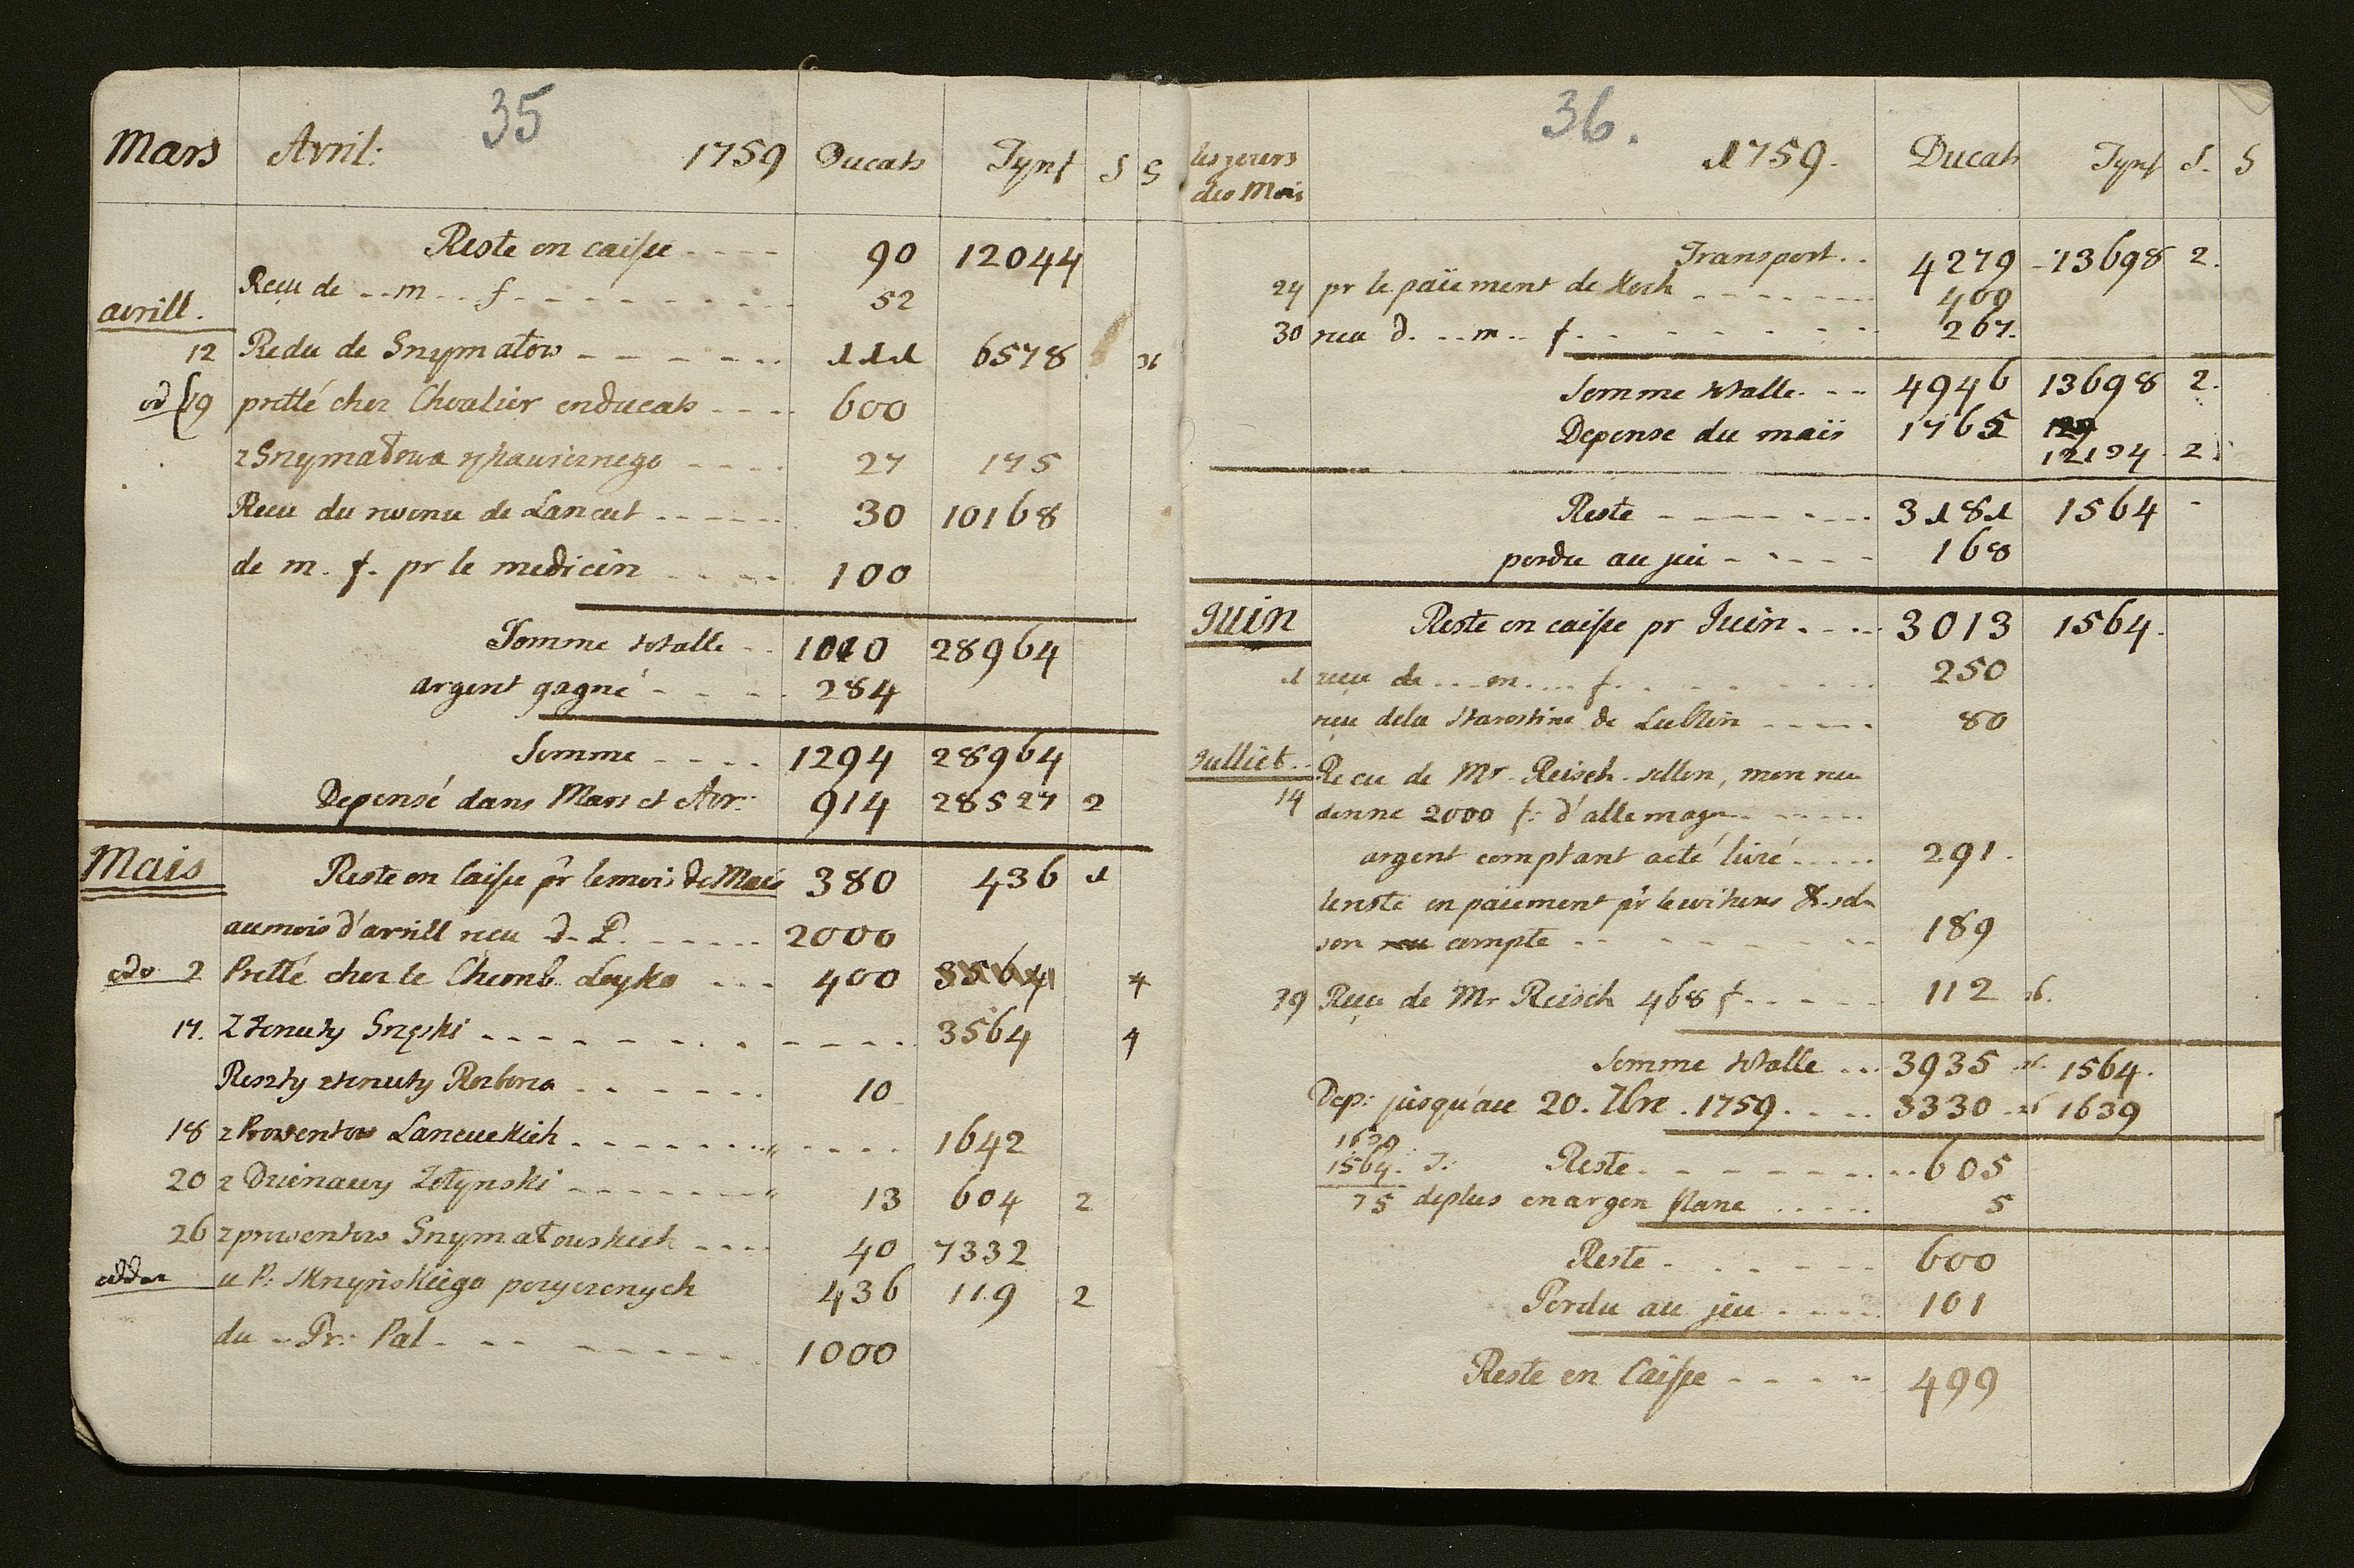 35
Mars Avril: 1759 Ducats Tynf S S
Reste en caisse - - - - 90 12044
Reçu de - - m - - f - - - - 52
avrill.
12 Redu de Snymatow - - - - - - 111 6578 26
od 19 pretté chez Chevalier en ducats - - - - 600
z Snymatowa - - - - 27 175
Recu du revenu de Lancut - - - - - 30 10168
de m. f. pr le medicin - - - - 100
Somme totalle - - 1010 28964
argent gagné - - - - - 284
Somme - - - - 1294 28964
Depensé dans Mars et Avr: 914 28527 2
Mais Reste en Caisse pr le mois de Mais 380 436 1
au mois d'avrill recu d. P. - - - - - 2000
odo 2 Pretté chez le Chemb. Loyko - - - 400 3564 4
17. Z Tenuty - - - - - - - - - - 3564 4
Reszty z tenuty - - - - - - 10
18 z Prowentow Lancuckich - - - - - - - - - - 1642
20 z Dzierzawy Zołynski - - - - - - - 13 604 2
26 z prowentow Snymatowskich - - - - 40 7332
oddane u P: pozyczonych 436 119 2
du - Pr: Pal - - - - - - - - - 1000
36.
les jours des Mois 1759. Ducats Tynf S. S
Transport. . 4279 - 13698 2.
24 pr le païement de - - - - - - - 400
30 recu d. . . m . . f. - - - - - - 267.
Somme totalle. - - 4946 13698 2.
Depense du mais 1765 12134 2
Reste - - - - - - - 3181 1564 -
perdu au jeu - - - - - 168
Juin Reste en caisse pr Juin. - - - 3013 1564.
1 recu de . . . m . . . . f. - - - - - - 250
recu dela Starostine de Lublin - - - - - 80
Julliet. - Recu de Mr. Reisch. sellon, mon recu
14 donne 2000 f: d'allemagne - - - - -
argent comptant a eté livré - - - - - 291.
le reste en païement pr le
son compte - - - - - - - - 189
29 Reçu de Mr Reisch 468 f - - - - - 112 26.
Somme totalle . . . 3935 26. 1564.
Dep: jusqu'au 20. 7bre. 1759. . . . . 3330 26 1639
1639
1564. T: Reste - - - - - - - - 605
75 de plus en argen blanc - - - - - 5
Reste - - - - - - 600
Perdu au jeu - - - - 101
Reste en Caisse - - - - 499